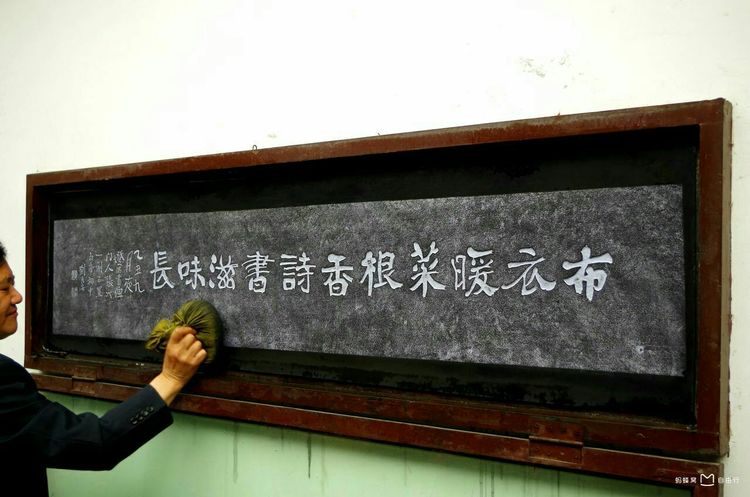 布衣暖菜根香詩書滋味長
蚂蜂窝 自由行